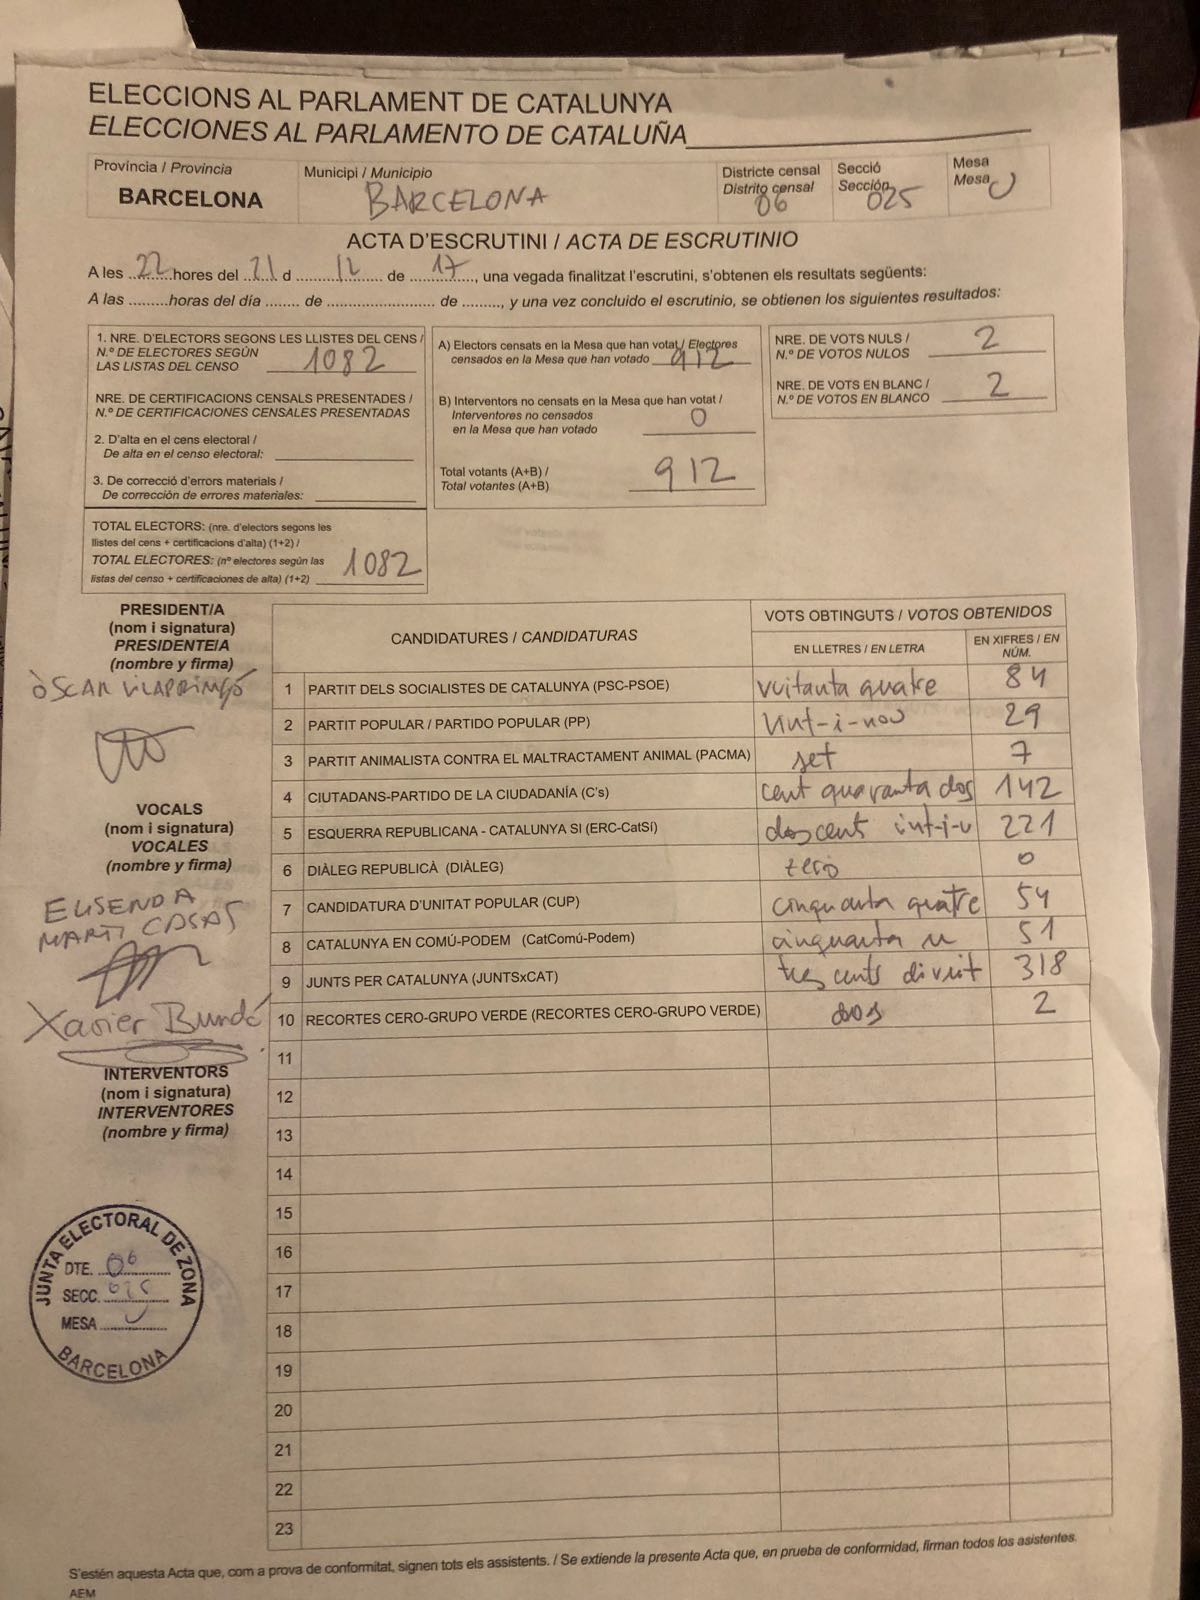 ELECCIONS AL PARLAMENT DE CATALUNYA
ELECCIONES AL PARLAMENTO DE CATALUÑA
Província / Provincia
BARCELONA
Municipi / Municipio
BARCELONA
Districte censal
Distrito censal
06
Secció
Sección
025
Mesa
Mesa
U
ACTA D'ESCRUTINI / ACTA DE ESCRUTINIO
A les ..22..hores del ..21 d ....12.... de ...17..., una vegada finalitzat l'escrutini, s'obtenen els resultats següents:
A las .........horas del día ....... de ...................... de ........, y una vez concluido el escrutinio, se obtienen los siguientes resultados:
1. NRE. D'ELECTORS SEGONS LES LLISTES DEL CENS /
N.º DE ELECTORES SEGÚN
LAS LISTAS DEL CENSO 1082
NRE. DE CERTIFICACIONS CENSALS PRESENTADES /
N.º DE CERTIFICACIONES CENSALES PRESENTADAS
2. D'alta en el cens electoral /
De alta en el censo electoral:
3. De correcció d'errors materials /
De corrección de errores materiales:
TOTAL ELECTORS: (nre. d'electors segons les
llistes del cens + certificacions d'alta) (1+2) /
TOTAL ELECTORES: (nº electores según las
listas del censo + certificaciones de alta) (1+2) 1082
A) Electors censats en la Mesa que han votat / Electores
censados en la Mesa que han votado 912
B) Interventors no censats en la Mesa que han votat /
Interventores no censados
en la Mesa que han votado 0
Total votants (A+B) /
Total votantes (A+B) 912
NRE. DE VOTS NULS /
N.º DE VOTOS NULOS 2
NRE. DE VOTS EN BLANC /
N.º DE VOTOS EN BLANCO 2
PRESIDENT/A
(nom i signatura)
PRESIDENTE/A
(nombre y firma)
ÒSCAR VILAPRINYÓ
VOCALS
(nom i signatura)
VOCALES
(nombre y firma)
ELISENDA
MARTI CASAS
Xavier Bundó
INTERVENTORS
(nom i signatura)
INTERVENTORES
(nombre y firma)
CANDIDATURES / CANDIDATURAS
VOTS OBTINGUTS / VOTOS OBTENIDOS
EN LLETRES / EN LETRA
EN XIFRES / EN
NÚM.
1 PARTIT DELS SOCIALISTES DE CATALUNYA (PSC-PSOE) vuitanta quatre 84
2 PARTIT POPULAR / PARTIDO POPULAR (PP) vint-i-nou 29
3 PARTIT ANIMALISTA CONTRA EL MALTRACTAMENT ANIMAL (PACMA) set 7
4 CIUTADANS-PARTIDO DE LA CIUDADANÍA (C's) cent quaranta dos 142
5 ESQUERRA REPUBLICANA - CATALUNYA SI (ERC-CatSí) dos cents int-i-u 221
6 DIÀLEG REPUBLICÀ (DIÀLEG) zero 0
7 CANDIDATURA D'UNITAT POPULAR (CUP) cinquanta quatre 54
8 CATALUNYA EN COMÚ-PODEM (CatComú-Podem) cinquanta u 51
9 JUNTS PER CATALUNYA (JUNTSxCAT) tres cents divuit 318
10 RECORTES CERO-GRUPO VERDE (RECORTES CERO-GRUPO VERDE) dos 2
11
12
13
14
15
16
17
18
19
20
21
22
23
JUNTA ELECTORAL DE ZONA
DTE. 06
SECC. 025
MESA U
BARCELONA
S'estén aquesta Acta que, com a prova de conformitat, signen tots els assistents. / Se extiende la presente Acta que, en prueba de conformidad, firman todos los asistentes.
AEM